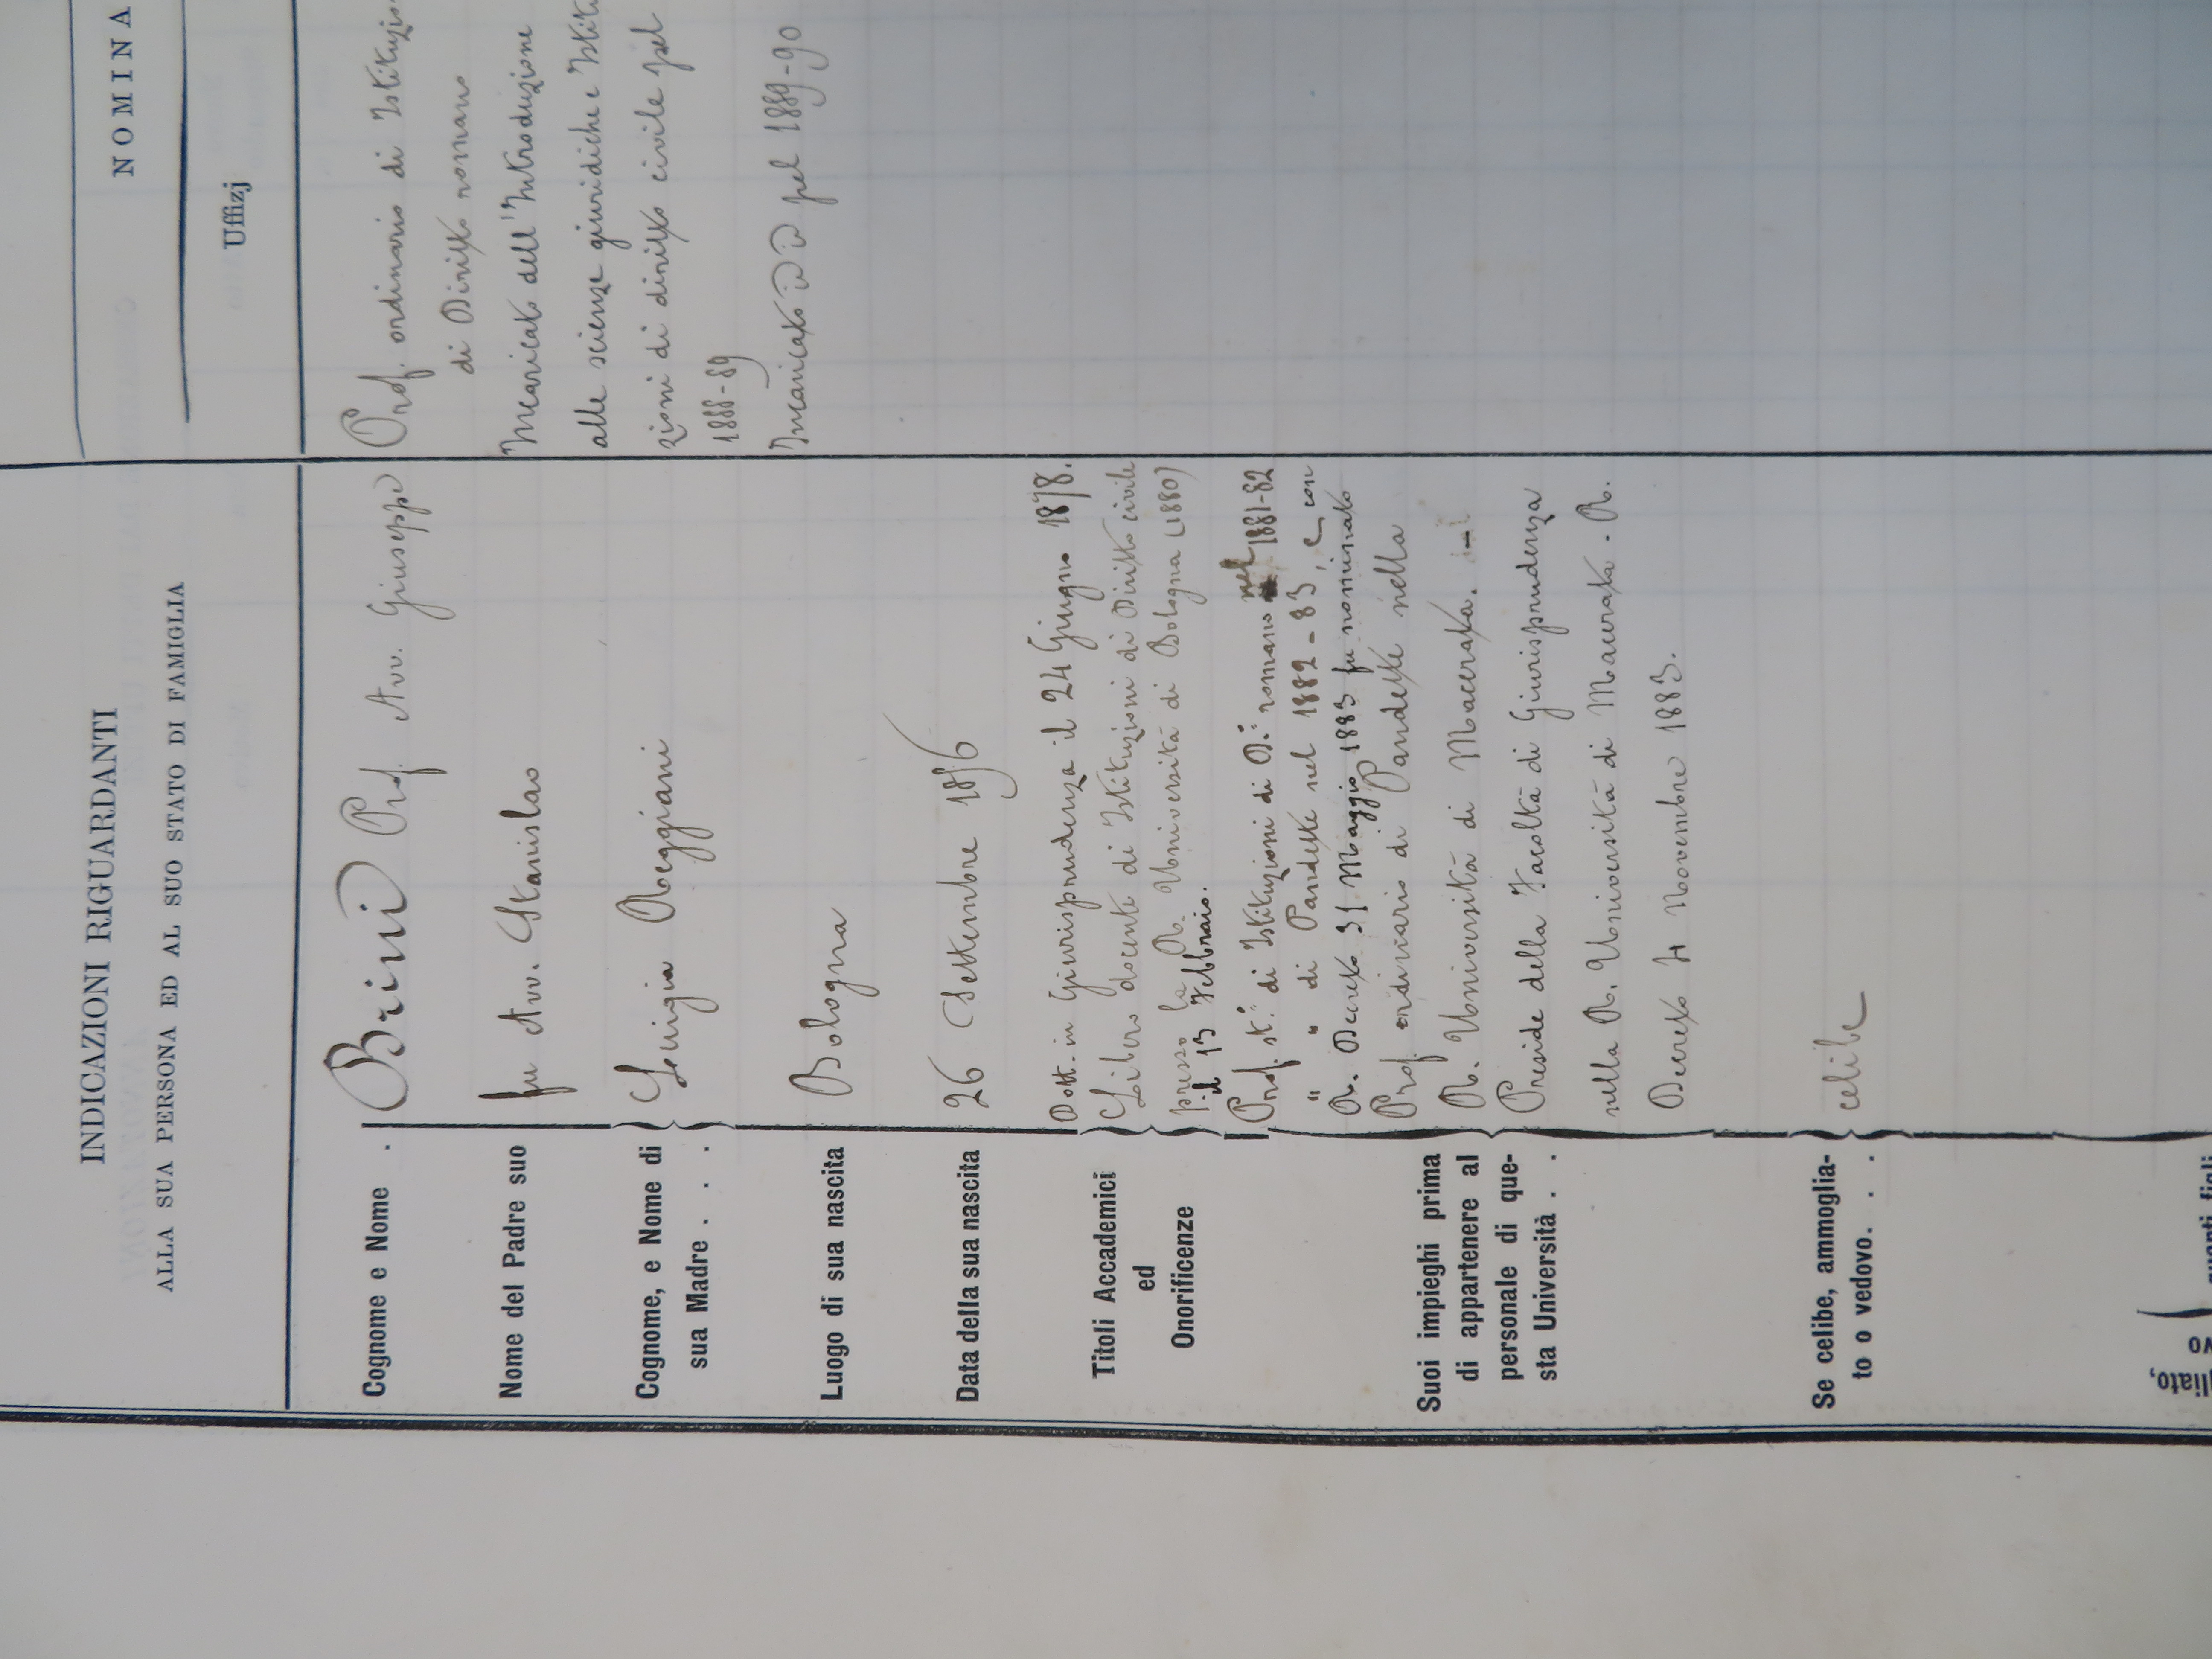 INDICAZIONI RIGUARDANTI
ALLA SUA PERSONA ED AL SUO STATO DI FAMIGLIA
Cognome e Nome .
Brini Prof. Avv. Giuseppe
Nome del Padre suo
fu Avv. Stanislao
Cognome, e Nome di
sua Madre . . .
Luigia Reggiani
Luogo di sua nascita
Bologna
Data della sua nascita
26 Settembre 1856
Titoli Accademici
ed
Onorificenze
Dott. in Giurisprudenza il 24 Giugno 1878.
Libero docente di Istituzioni di Diritto civile
presso la R. Università di Bologna (1880)
il 13 Febbraio.
Suoi impieghi prima
di appartenere al
personale di que-
sta Università . .
Prof. st.° di Istituzioni di D.° romano nel 1881-82
" " di Pandette nel 1882-83, e con
R. Decreto 31 Maggio 1883 fu nominato
Prof. ordinario di Pandette nella
R. Università di Macerata.
Preside della Facoltà di Giurisprudenza
nella R. Università di Macerata - R.
Decreto 4 Novembre 1883.
Se celibe, ammoglia-
to o vedovo. . .
celibe
quanti figli
NOMINA
Uffizj
Prof. ordinario di Istituzio
di Diritto romano
Incaricato dell'Introduzione
alle scienze giuridiche e Istit
zioni di diritto civile pel
1888-89
Incaricato pel 1889-90